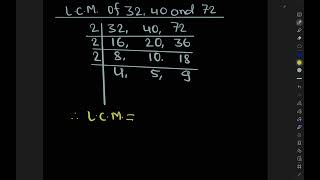 L.C.M. of 32, 40 and 72
2 32, 40, 72
2 16, 20, 36
2 8, 10. 18
4, 5, 9
∴ L.C.M. =